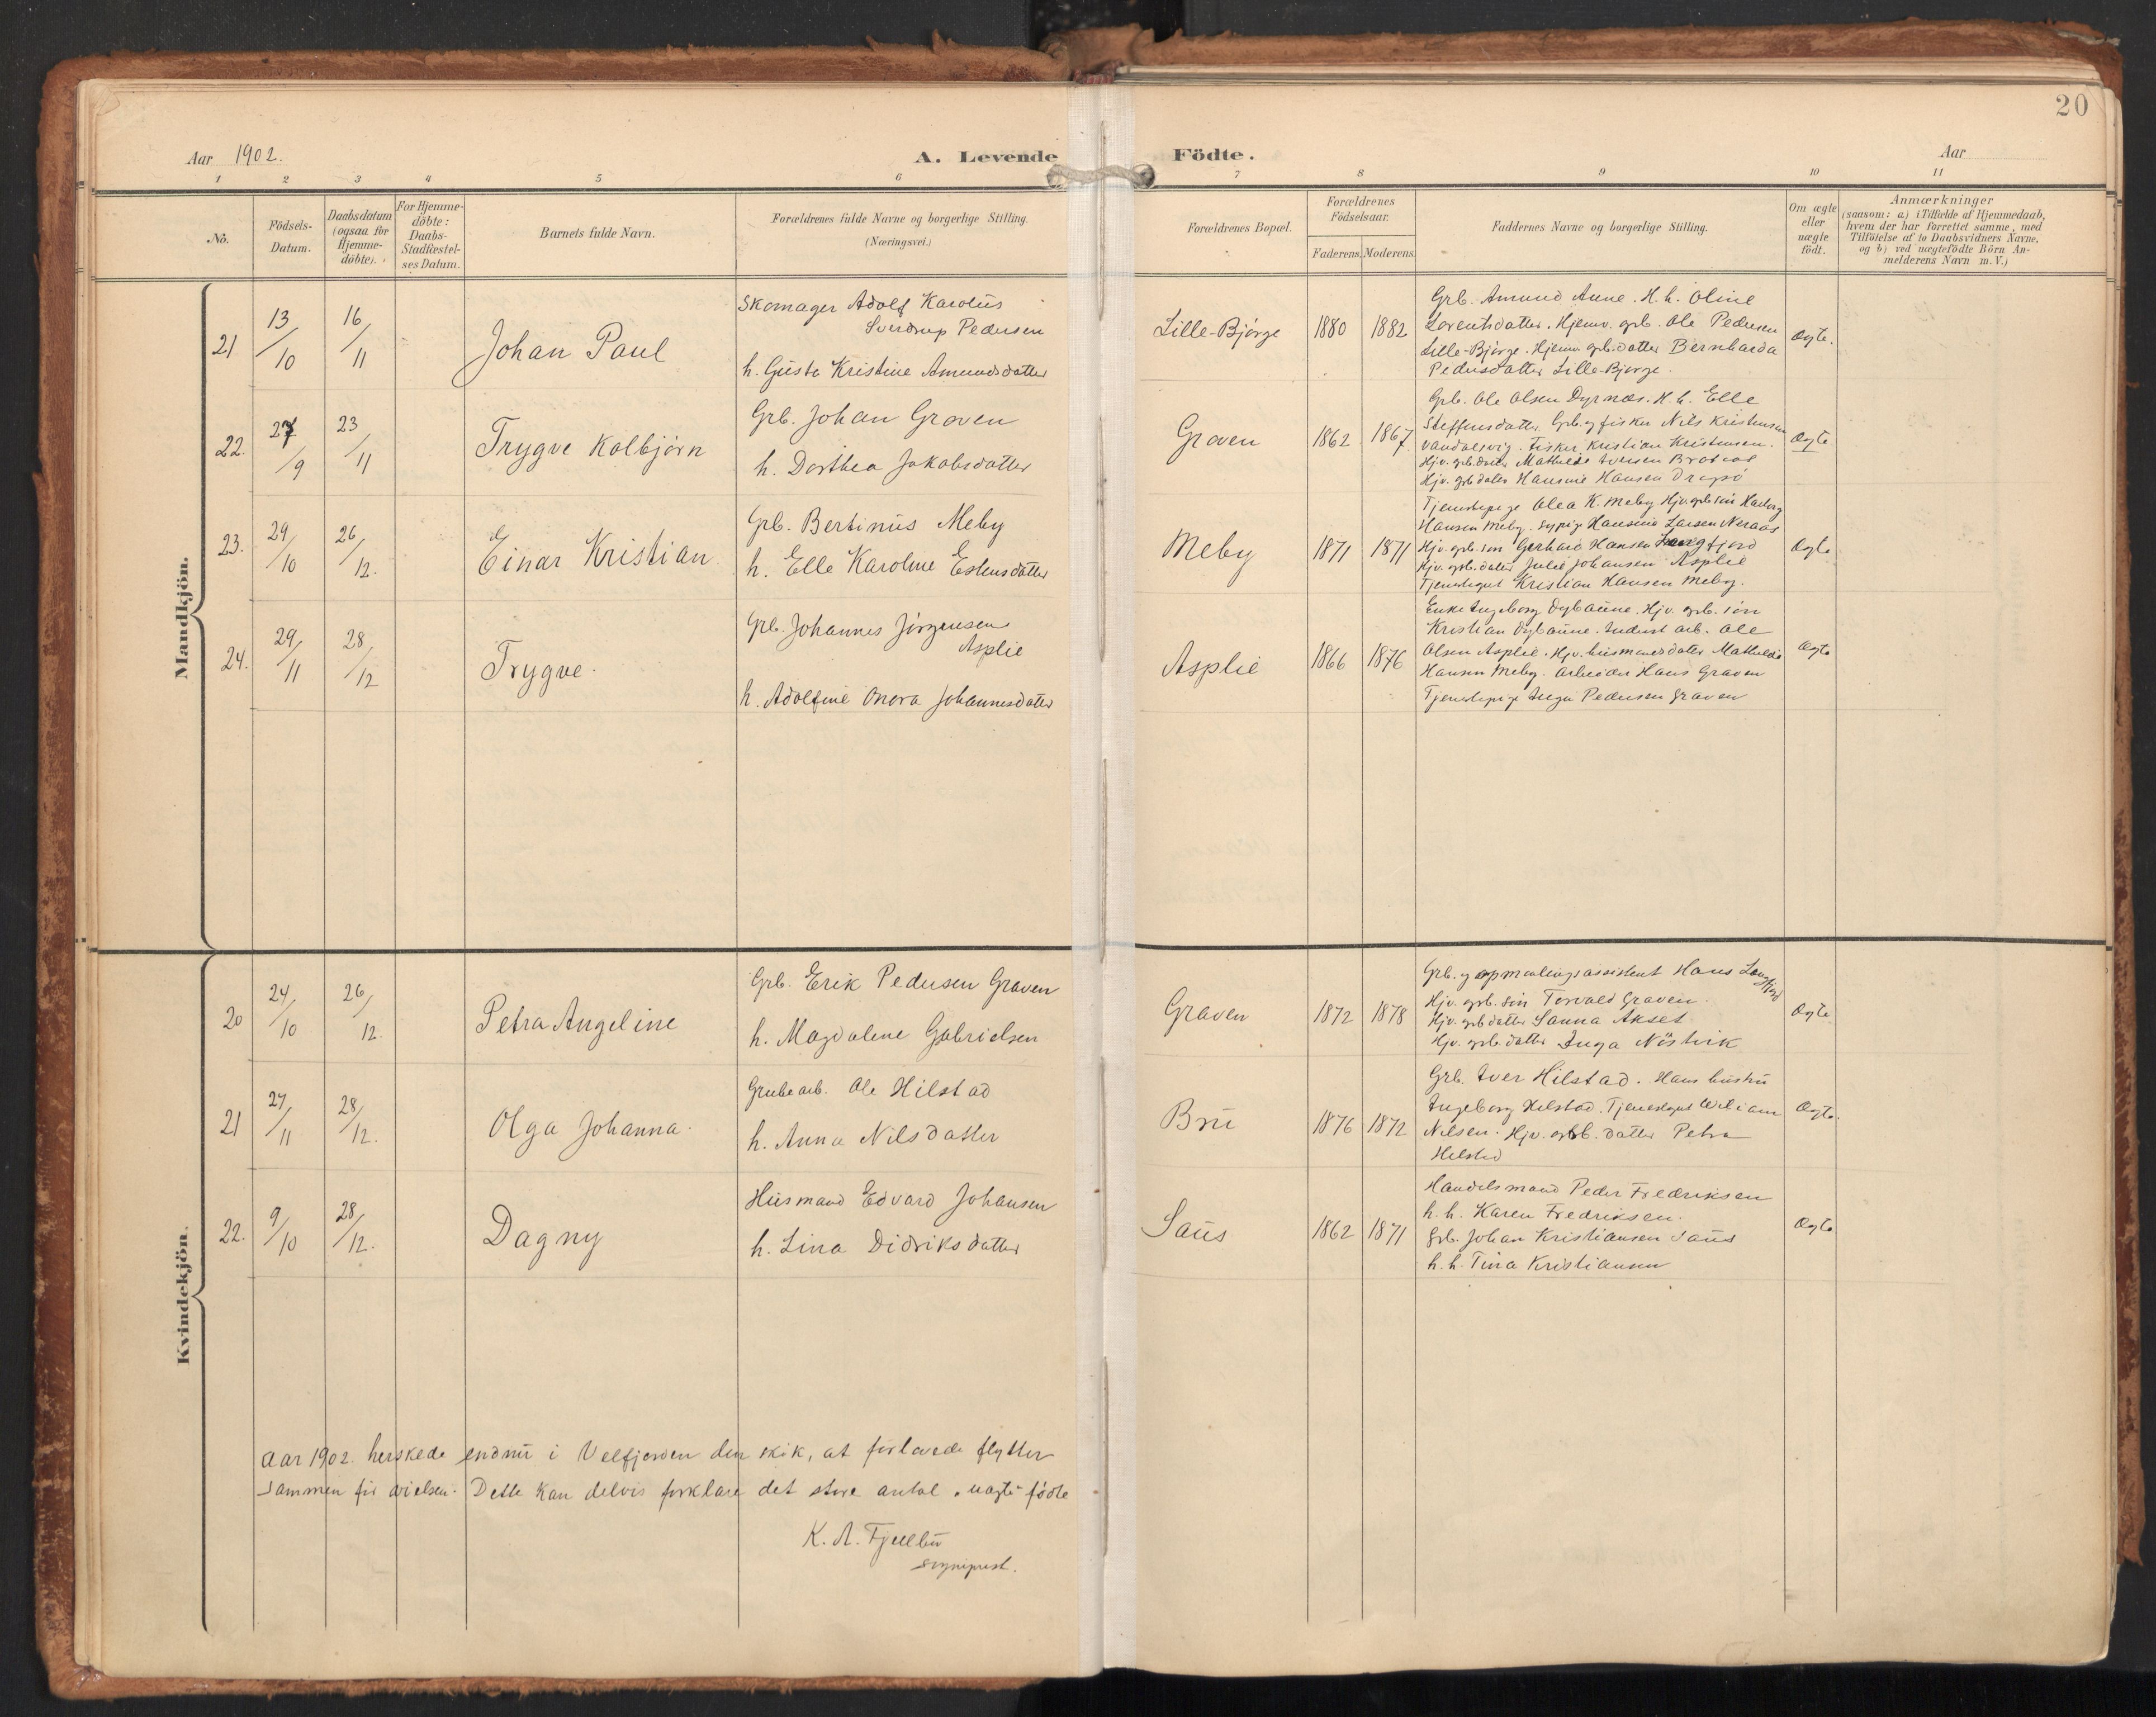 20
Aar 1902.
A. Levende Födte.
Aar
1 2 3 4 5 6 7 8 9 10 11
No.
Födsels-
Datum.
Daabsdatum
(ogsaa for
Hjemme-
döbte).
For Hjemme-
döbte:
Daabs-
Stadfæstel-
ses Datum.
Barnets fulde Navn.
Forældrenes fulde Navne og borgerlige Stilling.
(Næringsvei.)
Forældrenes Bopæl.
Forældrenes
Födselsaar.
Faderens. Moderens.
Faddernes Navne og borgerlige Stilling.
Om ægte
eller
uægte
födt.
Anmærkninger
(saasom: a) i Tilfælde af Hjemmedaab,
hvem der har forrettet samme, med
Tilföielse af to Daabsvidners Navne,
og b) ved uægtefödte Börn An-
melderens Navn m. V.)
Mandkjön.
21
13/10
16/11
Johan Paul
Skomager Adolf Karolus
Sverdrup Pedersen
h. Gusta Kristine Amundsdatter
Lille-Bjørge
1880
1882
Grb. Amund Aune. H.h. Oline
Lorentsdatter. Hjemv. grb. Ole Pedersen
Lille-Bjørge. Hjemv. grb. datter Bernharda
Pedersdatter Lille-Bjørge.
Ægte.
22.
27/9
23/11
Trygve Kolbjørn
Grb. Johan Graven
h. Dorthea Jakobsdatter
Graven
1862
1867
Grb. Ole Olsen Dyrnæs. H.h. Elle
Steffensdatter. Grb. og fisker Nils Kristensen
Vandalsvig. Fisker Kristian Kristensen.
Hjv. grb. datter Mathilde Iversen
Hjv. grb datter Hansine Hansen
Ægte
23.
29/10
26/12.
Einar Kristian
Grb. Bertinus Meby
h. Elle Karoline Estensdatter
Meby
1871
1871
Tjenestepige Olea K. Meby Hjv. grb. søn
Hansen Meby. Sypige Hansine Larsen Neraas
Hjv. grb. søn Gerhard Hansen Langfjord
Hjv. grb. datter Julie Johansen Asplie
Tjenestegut Kristian Hansen Meby.
Ægte
24.
29/11
28/12
Trygve.
Grb. Johannes Jörgensen
Asplie
h. Adolfine Onora Johannesdatter
Asplie
1866
1876
Enke Ingeborg Dybaune. Hjv. grb. søn
Kristian Dybaune. Indust. arb. Ole
Olsen Asplie. Hjv. husmandsdatter Mathilde
Hansen Meby. Arbeider Hans Graven
Tjenestepige Inga Pedersen Graven
Ægte
Kvindekjön.
20
24/10
26/12.
Petra Angeline
Grb. Erik Pedersen Graven
h. Magdalene Gabrielsen
Graven
1872
1878
Grb. og opmaalingsassistent Hans Langfjord
Hjv. grb. søn Torvald Graven.
Hjv. grb datter Sanna Akset
Hjv. grb. datter Inga Nöstvik
Ægte
21
27/11
28/12.
Olga Johanna.
Grubearb. Ole Hilstad
h. Anna Nilsdatter
Bru
1876
1872
Grb. Iver Hilstad. Hans hustru
Ingeborg Hilstad. Tjenestegut Wiliam
Nilsen. Hjv. grb. datter Petra
Hilstad
Ægte.
22.
9/10
28/12.
Dagny
Husmand Edvard Johansen
h. Lina Didriksdatter
Saus
1862
1871
Handelsmand Peder Fredriksen
h. h. Karen Fredriksen.
Grb. Johan Kristiansen Saus
h. h. Tina Kristiansen
Ægte
Aar 1902. herskede endnu i Velfjorden den skik, at forlovede flytter
sammen før vielsen. Dette kan delvis forklare det store antal "uægte" fødte
K. A. Fjellbu
sogneprest.